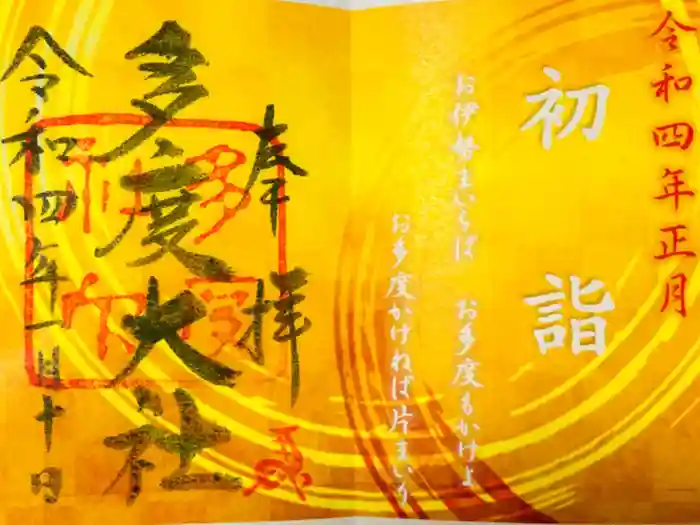 令和四年正月
初詣
お伊勢まいらば お多度もかけよ
お多度かけねば片まいり
奉拝
多度大社
令和四年一月十日